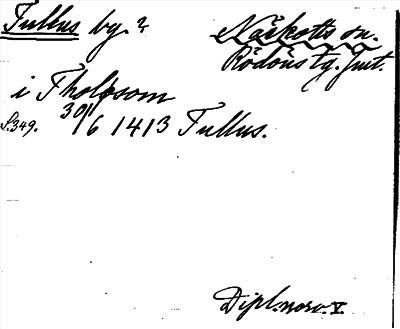 Tullus by.?
Näskotts sn.
Rödöns tg. Jmt.
i Tholfsom
S.349. 30/6 1413 Tullus.
Dipl. norv. V.